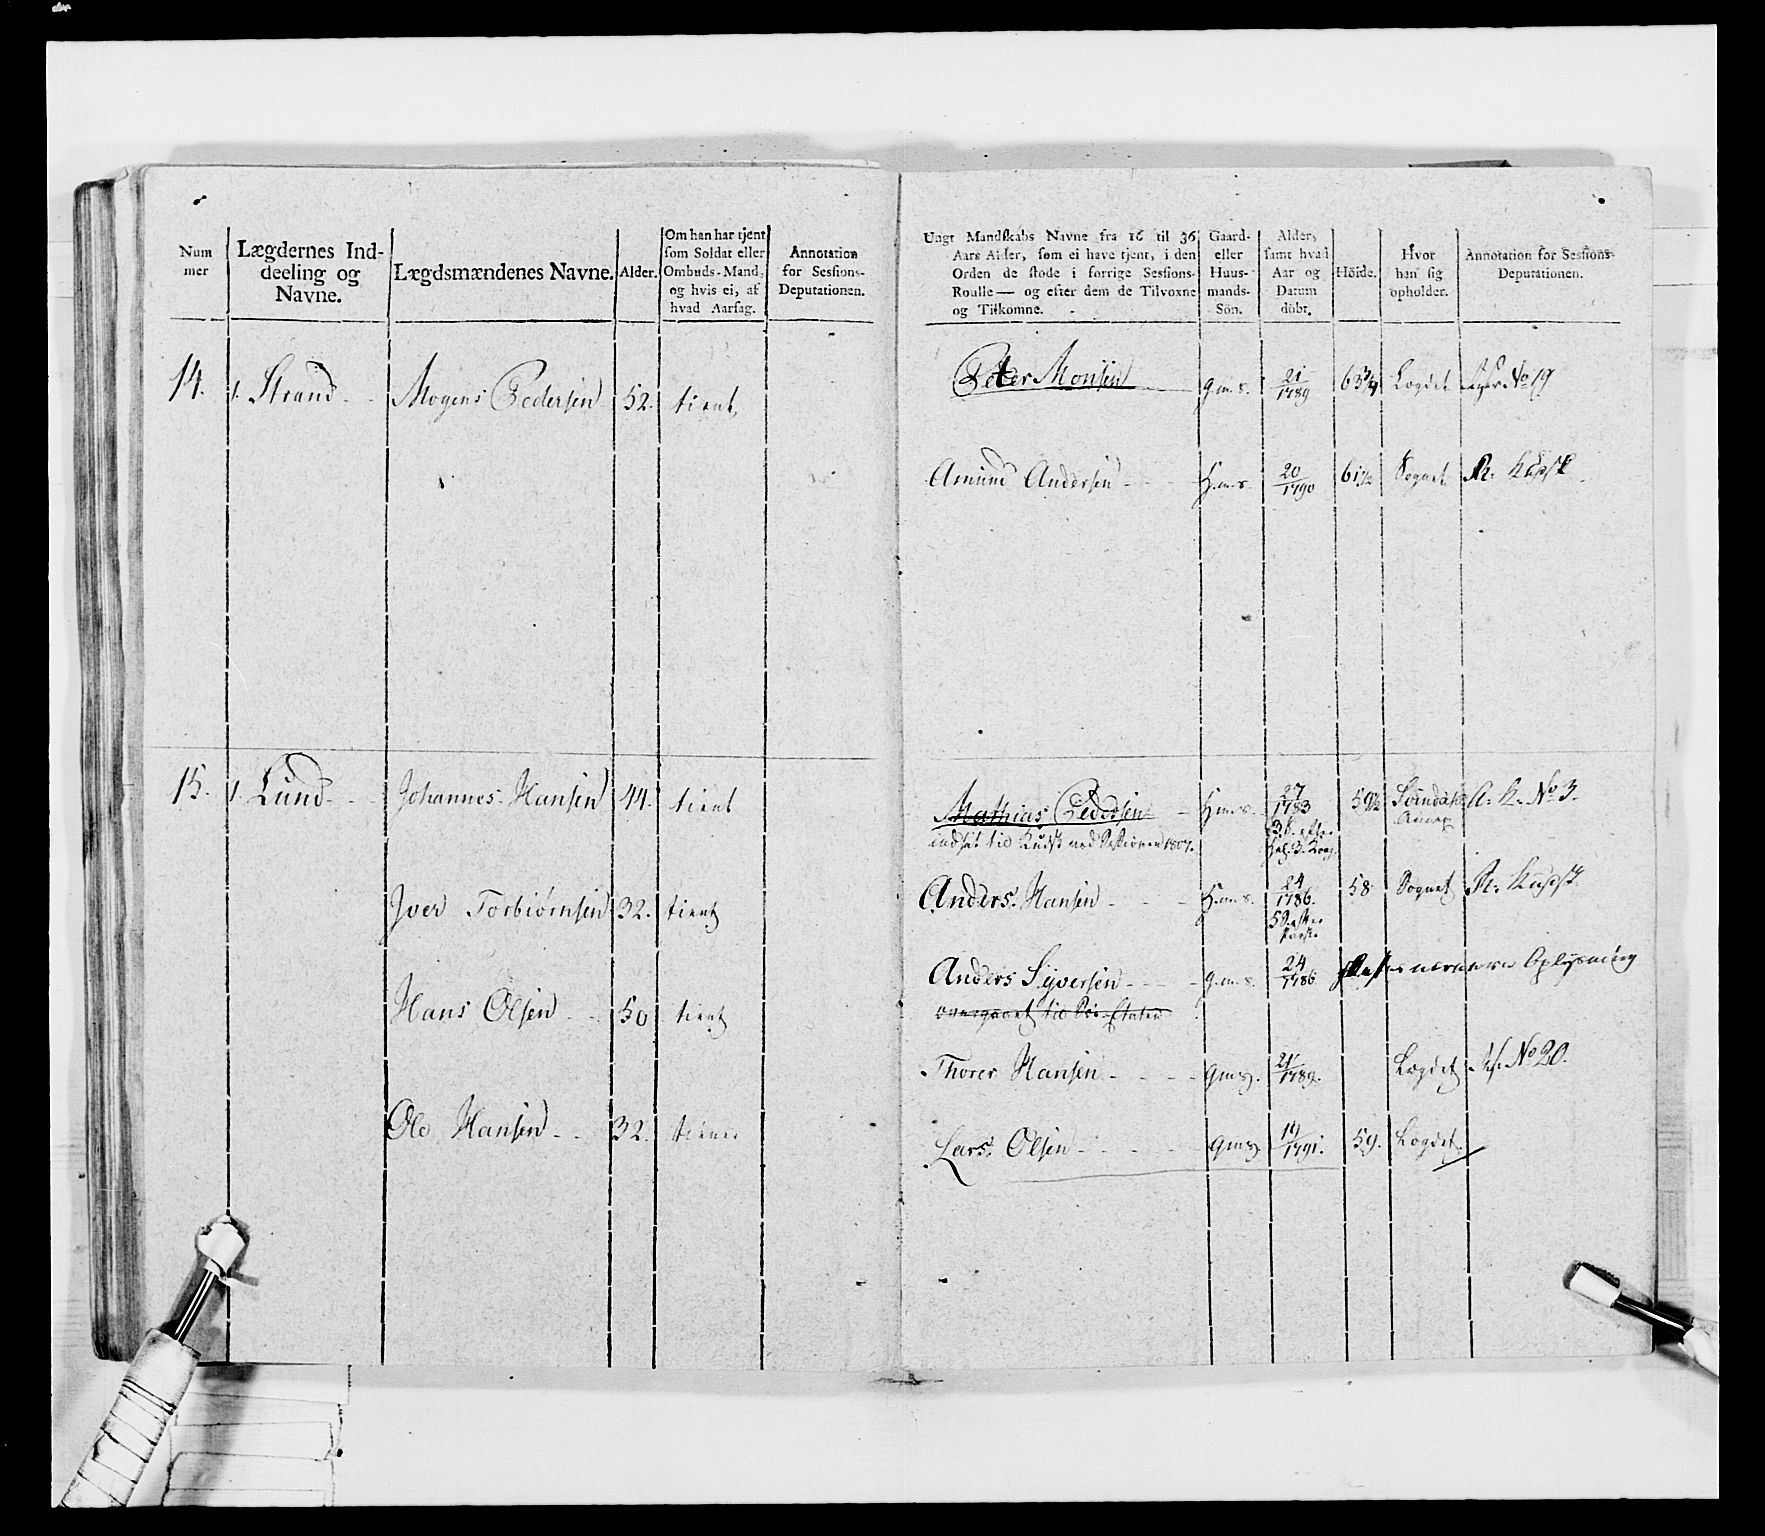 Num
mer
Lægdernes Ind-
deeling og
Navne.
Lægdsmændenes Navne.
Alder.
Om han har tjent
som Soldat eller
Ombuds-Mand,
og hvis ei, af
hvad Aarsag.
Annotation
for Sessions-
Deputationen.
14. 1. Strand Mogens Pedersen 52. tient
15. 1. Lund Johannes Hansen 44. tient
Iver Torbiørnsen 32. tient
Hans Olsen 50 tient
Ole Hansen 32. tient
Ungt Mandskabs Navne fra 16 til 36
Aars Alder, som ei have tjent, i den
Orden de stode i forrige Sessions-
Roulle — og efter dem de Tilvoxne
og Tilkomne.
Gaard-
eller
Huus-
mands-
Sön.
Alder,
samt hvad
Aar og
Datum
döbt.
Höide.
Hvor
han sig
opholder.
Annotation for Sessions-
Deputationen.
Peter Monsen g.m.s. 21/1789 63 3/4 Lægdet No 19
Amund Andersen H.m.s. 20/1790 61 1/2 Sognet R: Kudsk
Mathias Pedersen H.m.s. 27/1783 59 1/2 A: K: No 3.
Annex
indsat til Kudsk ved Sessionen 1807.
Anders Hansen H.m.s. 24/1786. 58 Sognet R: Kudsk
Anders Syversen g.m.s. 24/1786 nærmere Oplysning
overgaaet til Søe-Etaten
Thorer Hansen gms. 21/1789. Lægdet No 20.
Lars Olsen gms. 19/1791. 59. Lægdet